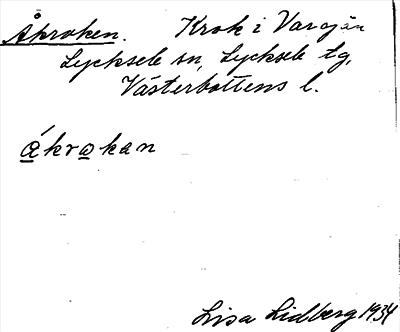 Åkroken. Krok i Varojån
Lycksele sn, Lycksele tg,
Västerbottens l.
ákrokan
Lisa Lidberg 1934